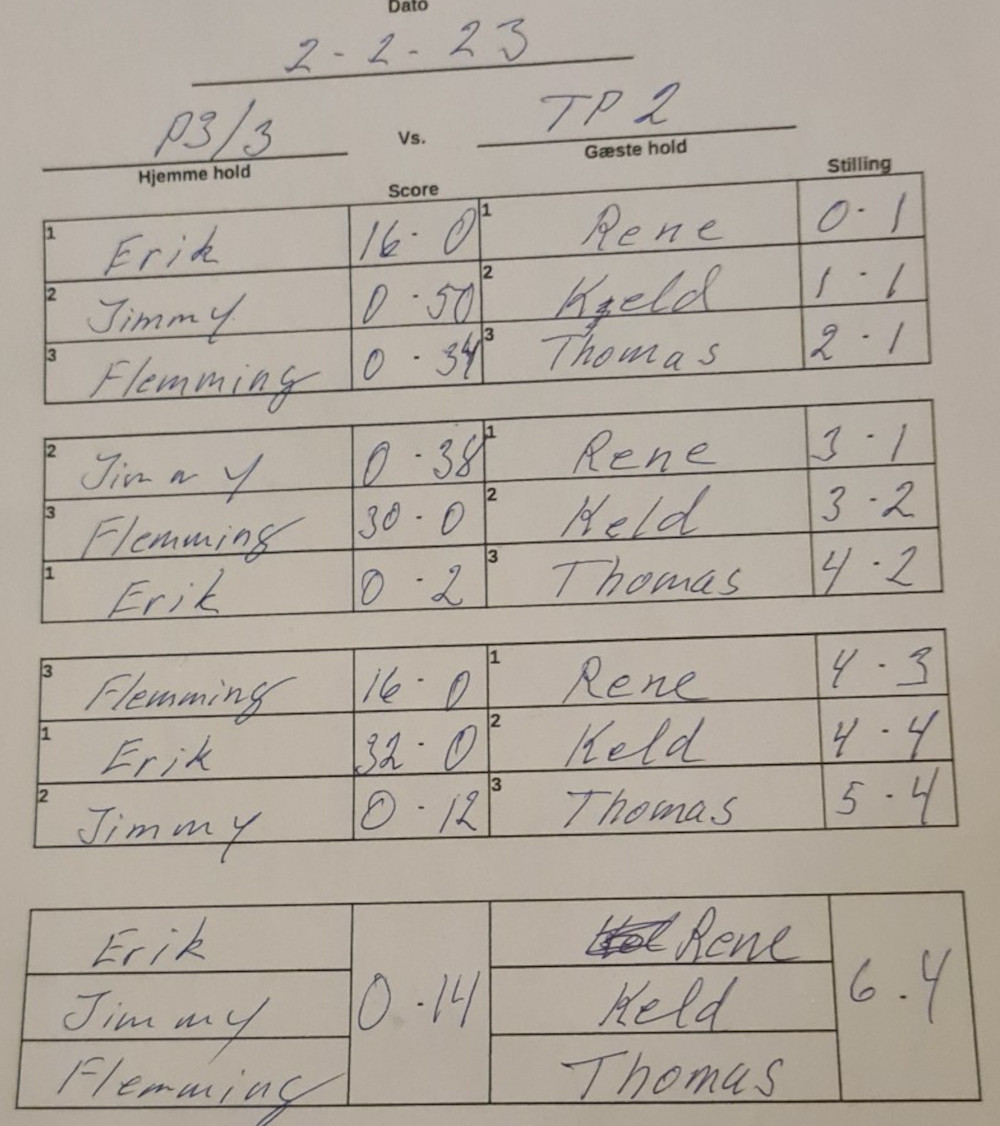 Dato
2-2-23
P3/3 Vs. TP2
Hjemme hold Gæste hold
Score Stilling
1 Erik 16-0 1 Rene 0-1
2 Jimmy 0-50 2 Keld 1-1
3 Flemming 0-34 3 Thomas 2-1
2 Jimmy 0-38 1 Rene 3-1
3 Flemming 30-0 2 Keld 3-2
1 Erik 0-2 3 Thomas 4-2
3 Flemming 16-0 1 Rene 4-3
1 Erik 32-0 2 Keld 4-4
2 Jimmy 0-12 3 Thomas 5-4
Erik Rene
Jimmy 0-14 Keld 6-4
Flemming Thomas